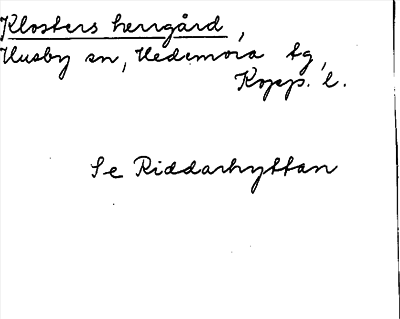 Klosters herrgård,
Husby sn, Hedemora tg,
Kopp. l.
Se Riddarhyttan